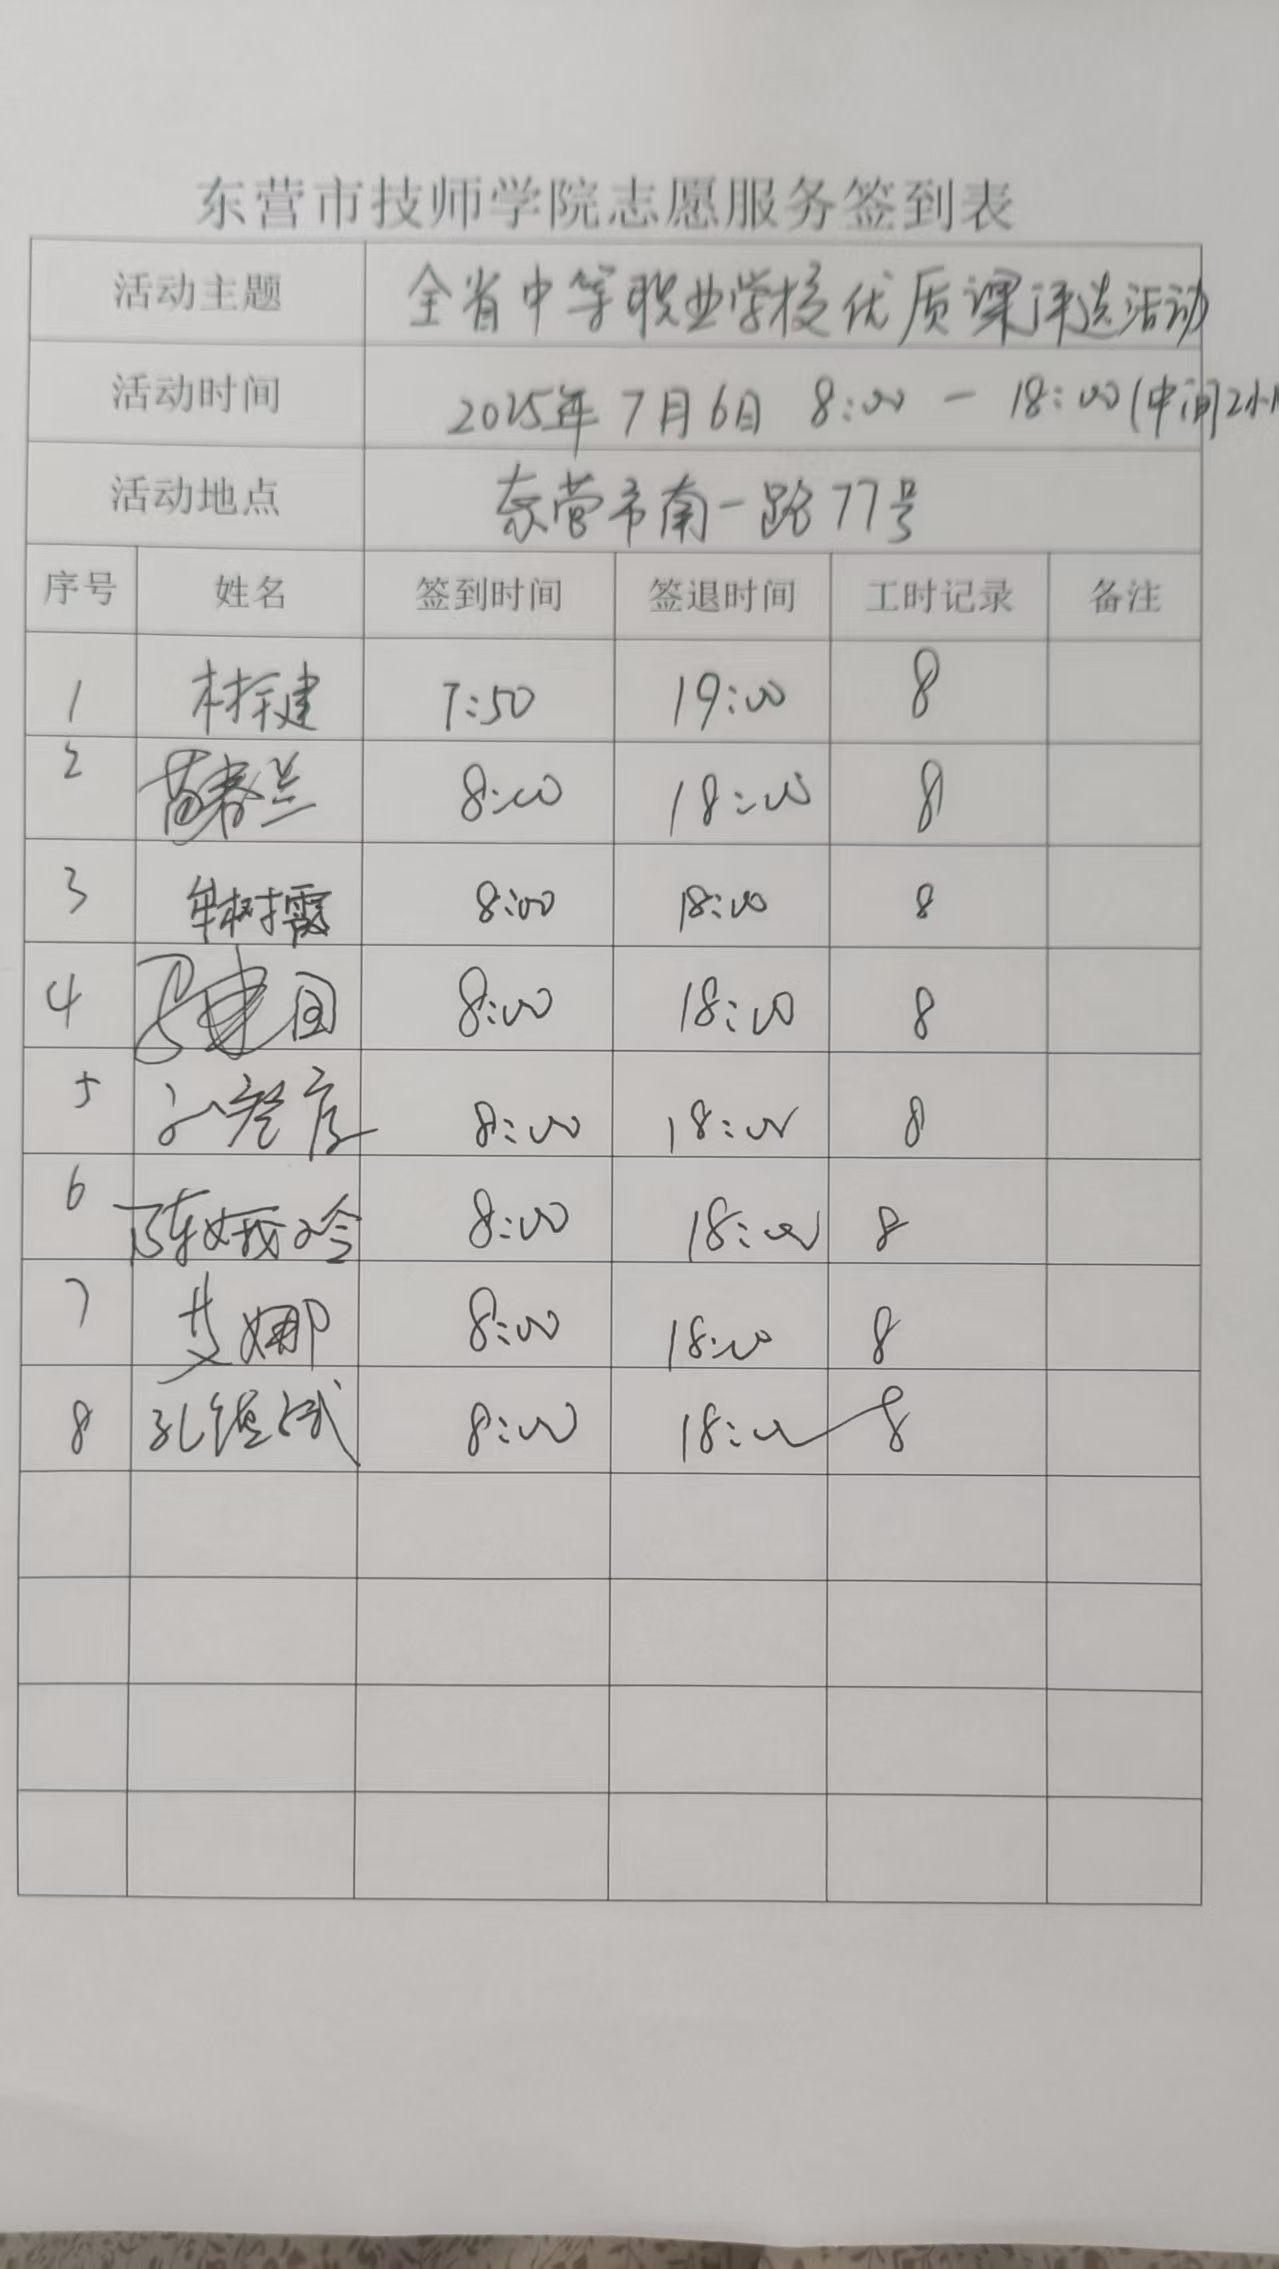 东营市技师学院志愿服务签到表
活动主题 全省中等职业学校优质课评选活动
活动时间 2025年7月6日 8:00 — 18:00(中间2小
活动地点 东营市南一路77号
序号 姓名 签到时间 签退时间 工时记录 备注
1 7:50 19:00 8
2 苗春兰 8:00 18:00 8
3 牟树霞 8:00 18:00 8
4 8:00 18:00 8
5 8:00 18:00 8
6 陈娥玲 8:00 18:00 8
7 艾娜 8:00 18:00 8
8 8:00 18:00 8